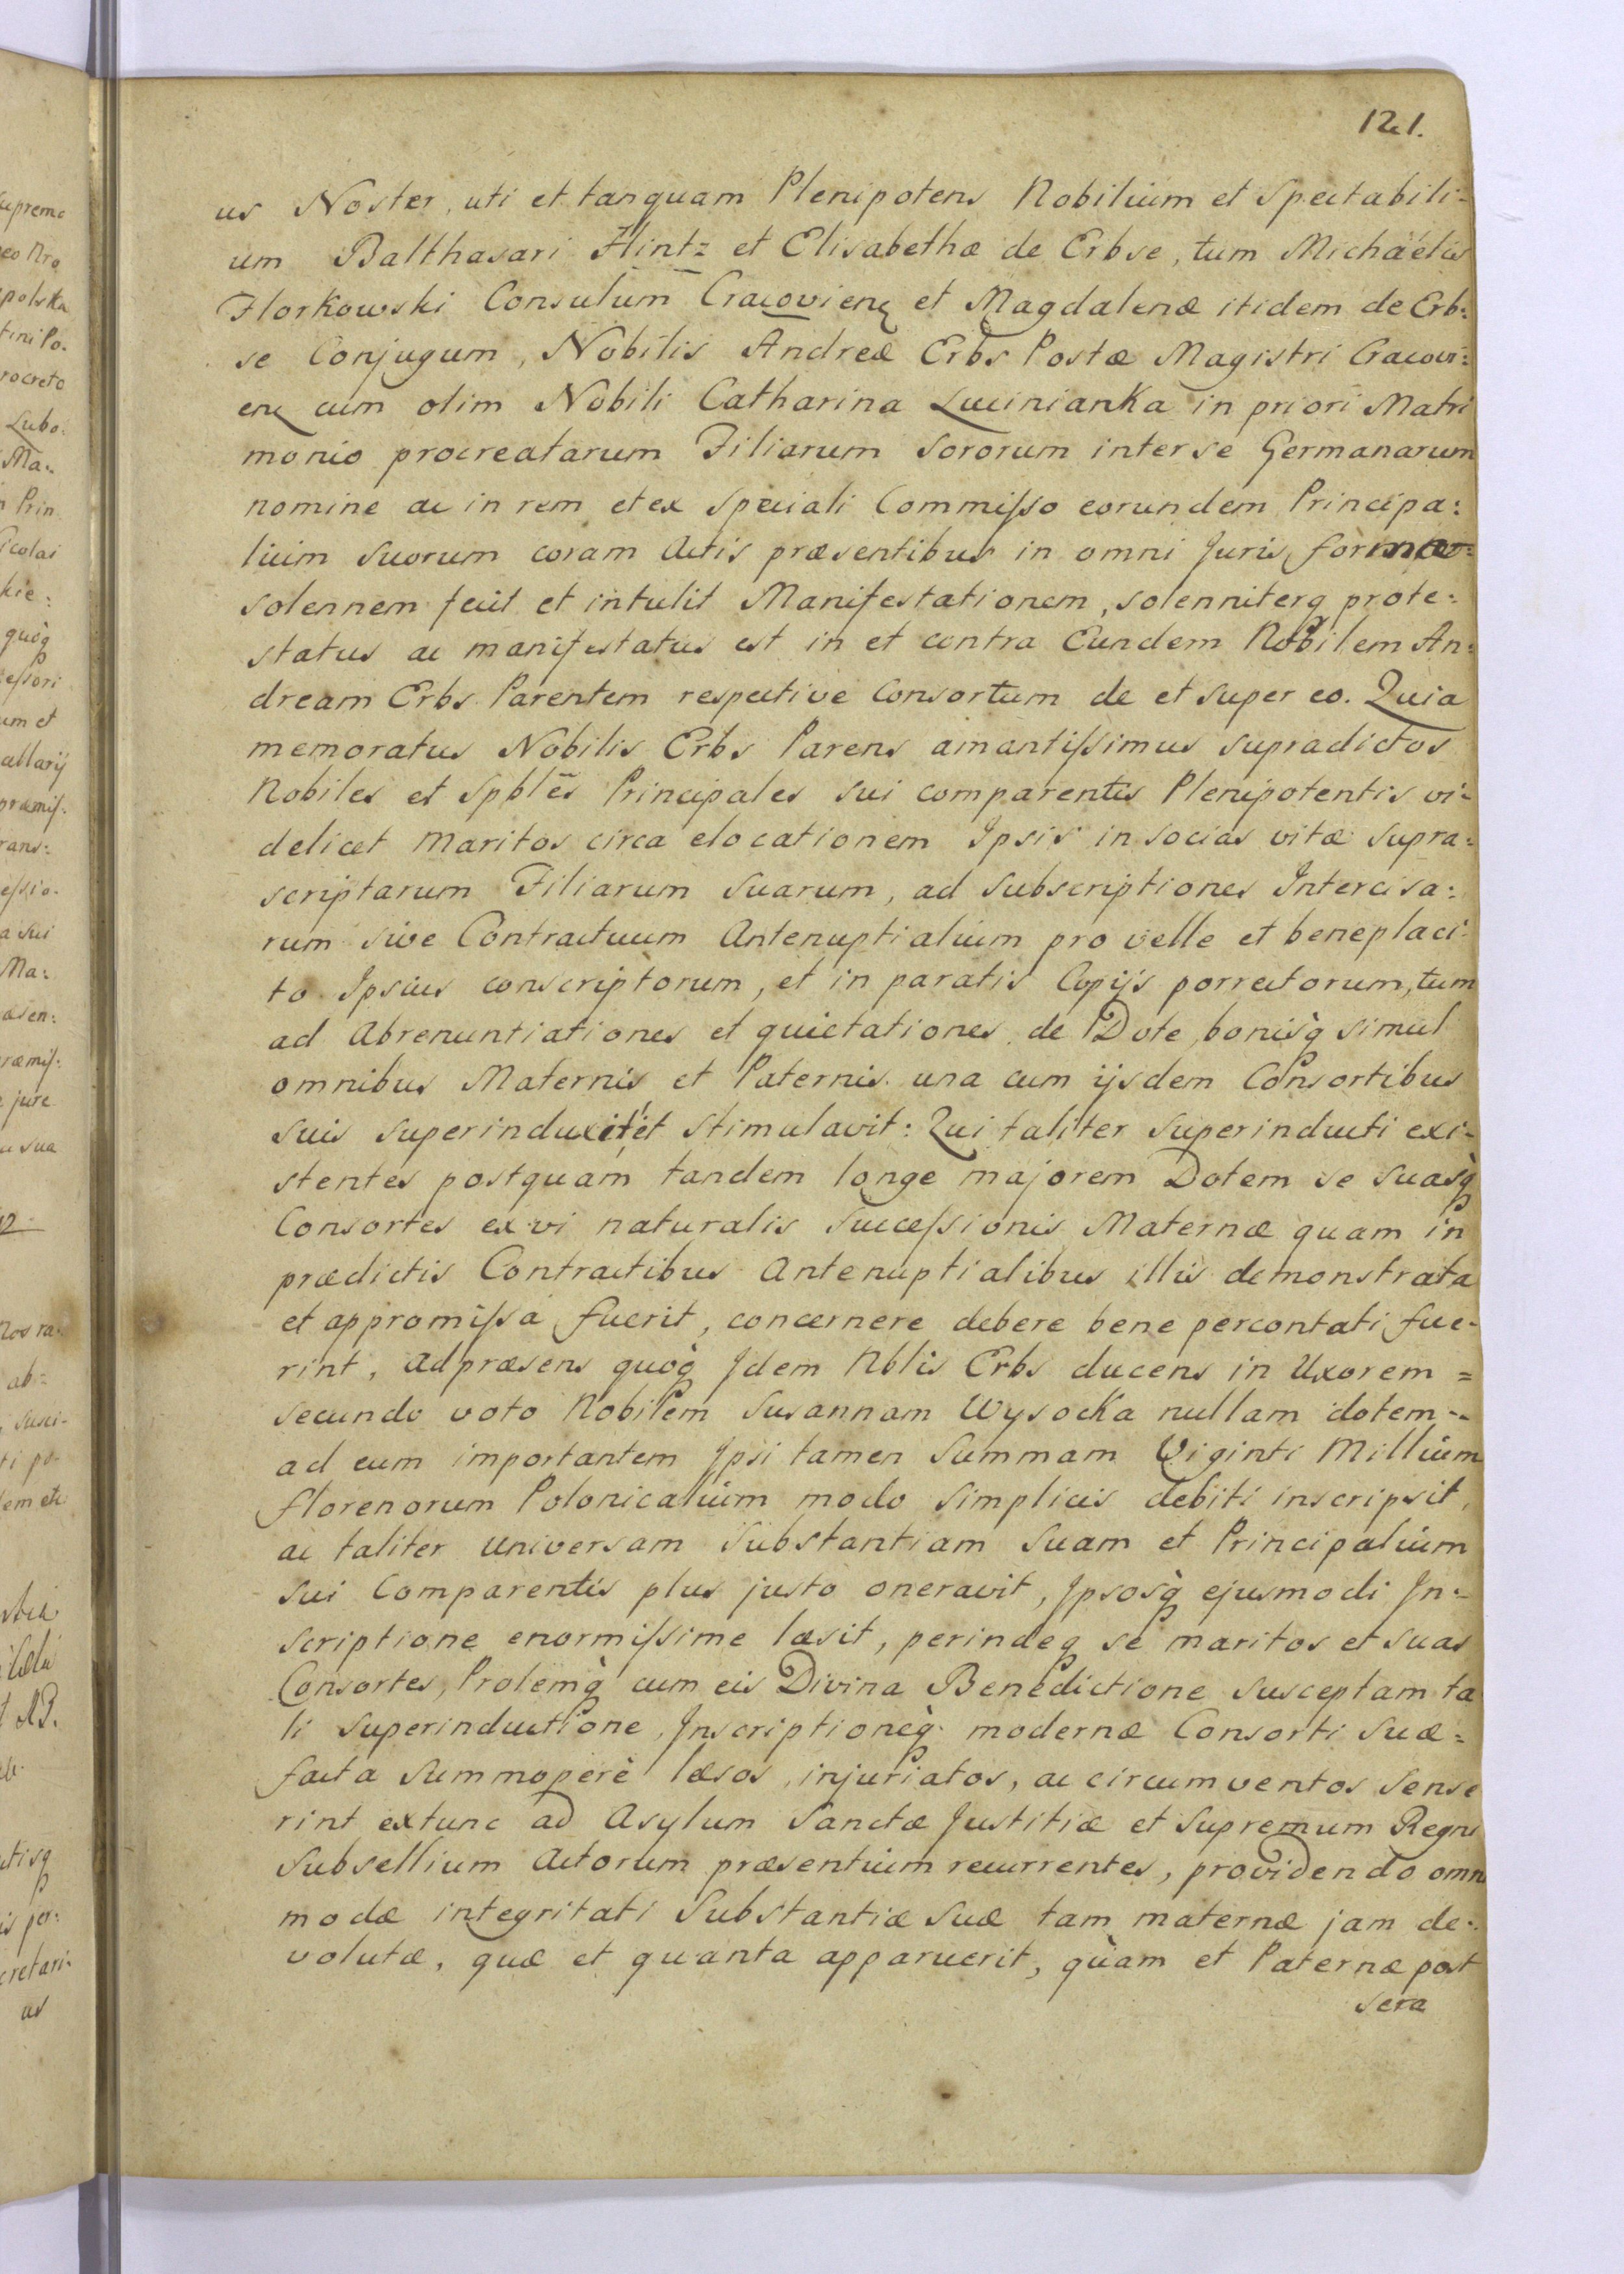 121.
us Noster, uti et tanquam Plenipotens Nobilium et Spectabili-
um Balthasari Hintz et Elisabethæ de Erbse, tum Michaëlis
Florkowski Consulum Cracovien et Magdalenæ itidem de Erb:
se Conjugum, Nobilis Andreæ Erbs Postæ Magistri Cracovi:
en cum olim Nobili Catharina Lucinianka in priori Matri
monio procreatarum Filiarum Sororum inter se Germanarum
nomine ac in rem et ex Speciali Commisso eorundem Principa:
lium Suorum coram Actis præsentibus in omni Juris forma
solennem fecit et intulit Manifestationem, solenniterq prote:
status ac manifestatus est in et contra Eundem Nobilem An:
dream Erbs Parentem respective Consortum de et super eo. Quia
memoratus Nobilis Erbs Parens amantissimus supradictos
Nobiles et Spblēs Principales sui comparentis Plenipotentis vi-
delicet Maritos circa elocationem Ipsis in socias vitæ supra:
scriptarum Filiarum Suarum, ad Subscriptiones Intercisa:
rum sive Contractuum Antenuptialium pro velle et beneplaci-
to Ipsius conscriptorum, et in paratis Copijs porrectorum, tum
ad Abrenuntiationes et quietationes de Dote, bonisq̀ simul
omnibus Maternis et Paternis una cum ijsdem Consortibus
suis superinduxit et stimulavit: Qui taliter superinducti exi-
stentes postquam tandem longe majorem Dotem se suasq̀
Consortes ex vi naturalis Successionis Maternæ quam in
prædictis Contractibus Antenuptialibus illis demonstrata
et appromissa fuerit, concernere debere bene percontati fue-
rint, ad præsens quoq̀ Idem Nblis Erbs ducens in Uxorem =
secundo voto Nobilem Susannam Wysocka nullam dotem --
ad eum importantem Ipsi tamen Summam Viginti Millium
florenorum Polonicalium modo simplicis debiti inscripsit,
ac taliter universam Substantiam Suam et Principalium
sui Comparentis plus justo oneravit, Ipsosq̀ ejusmodi In-
scriptione enormissime læsit, perindeq se maritos et suas
Consortes, Prolemq̀ cum eis Divina Benedictione susceptam ta
li superinductione, Inscriptioneq̀ modernæ Consorti Suæ =
facta Summoperè læsos, injuriatos, ac circumventos sense
rint extunc ad Asylum Sanctæ Justitiæ et Supremum Regni
Subsellium Actorum præsentium recurrentes, providendo omni
modæ integritati Substantiæ Suæ tam maternæ jam de-
volutæ, quæ et quanta apparuerit, quàm et Paternæ post
sera